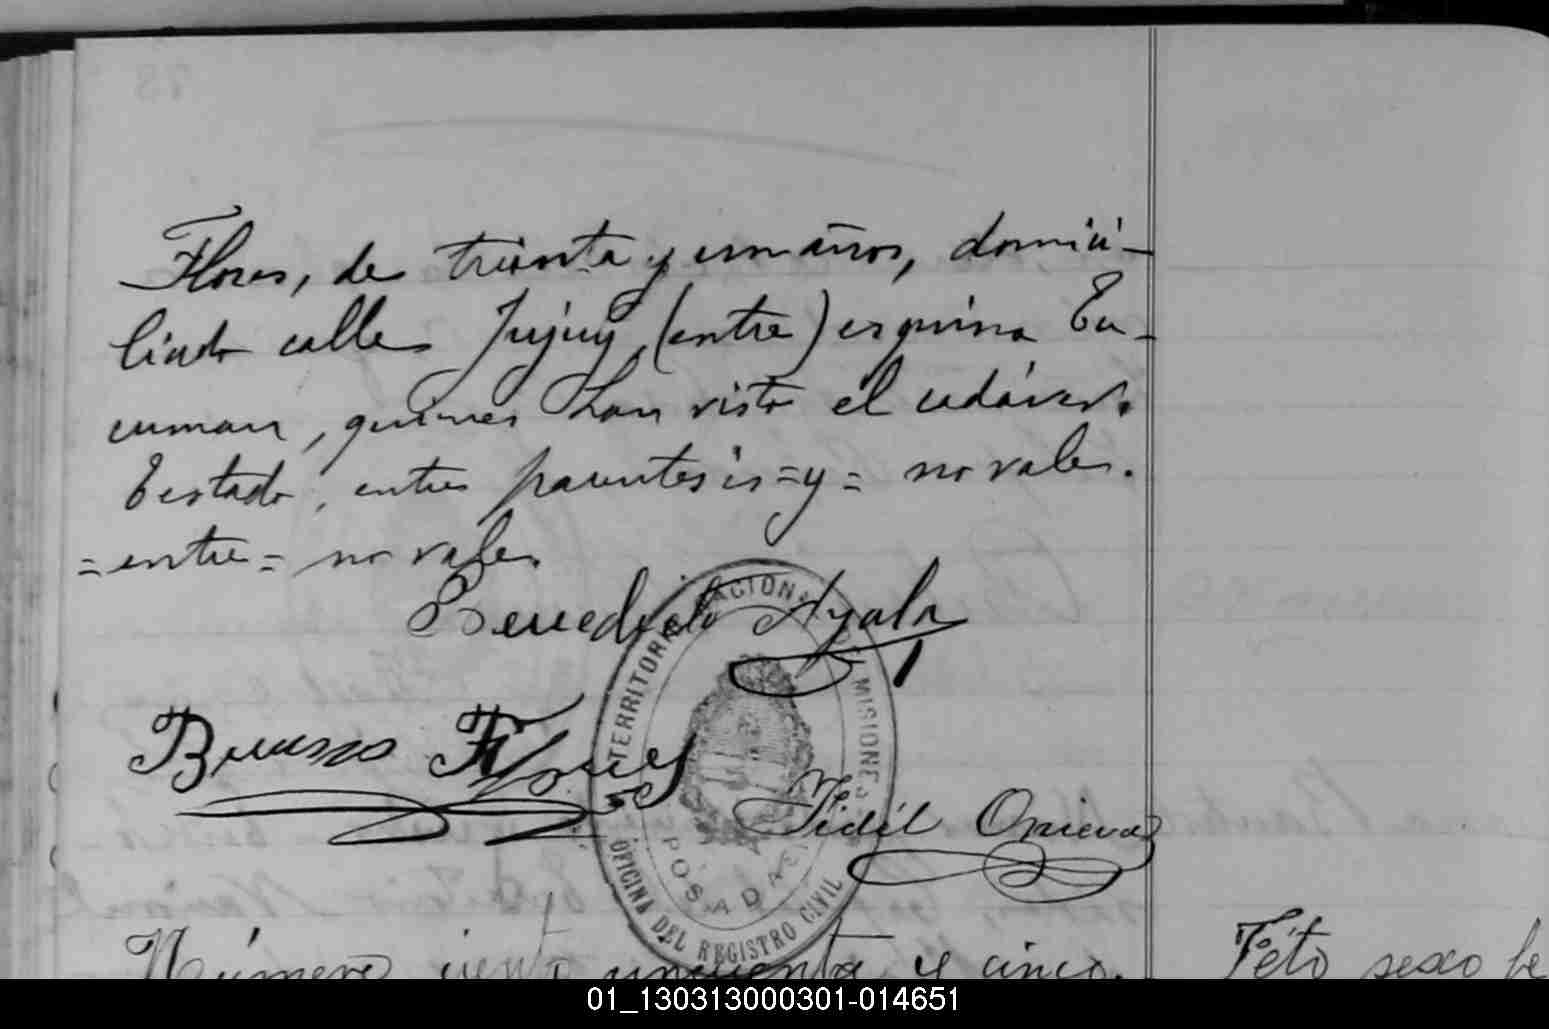 Flores, de treinta y un años, domici-
liado calle Jujuy, (entre) esquina Tu-
cuman, quienes han visto el cadáver.
Testado, entre parentesis =y= no vale.
=entre= no vale.
Benedicto Ayala
TERRITORIO NACIONAL DE MISIONES
Flores
Fidél
POSADAS
OFICINA DEL REGISTRO CIVIL
Número ciento cincuenta y cinco.
Féto sexo fe
01_130313000301-014651